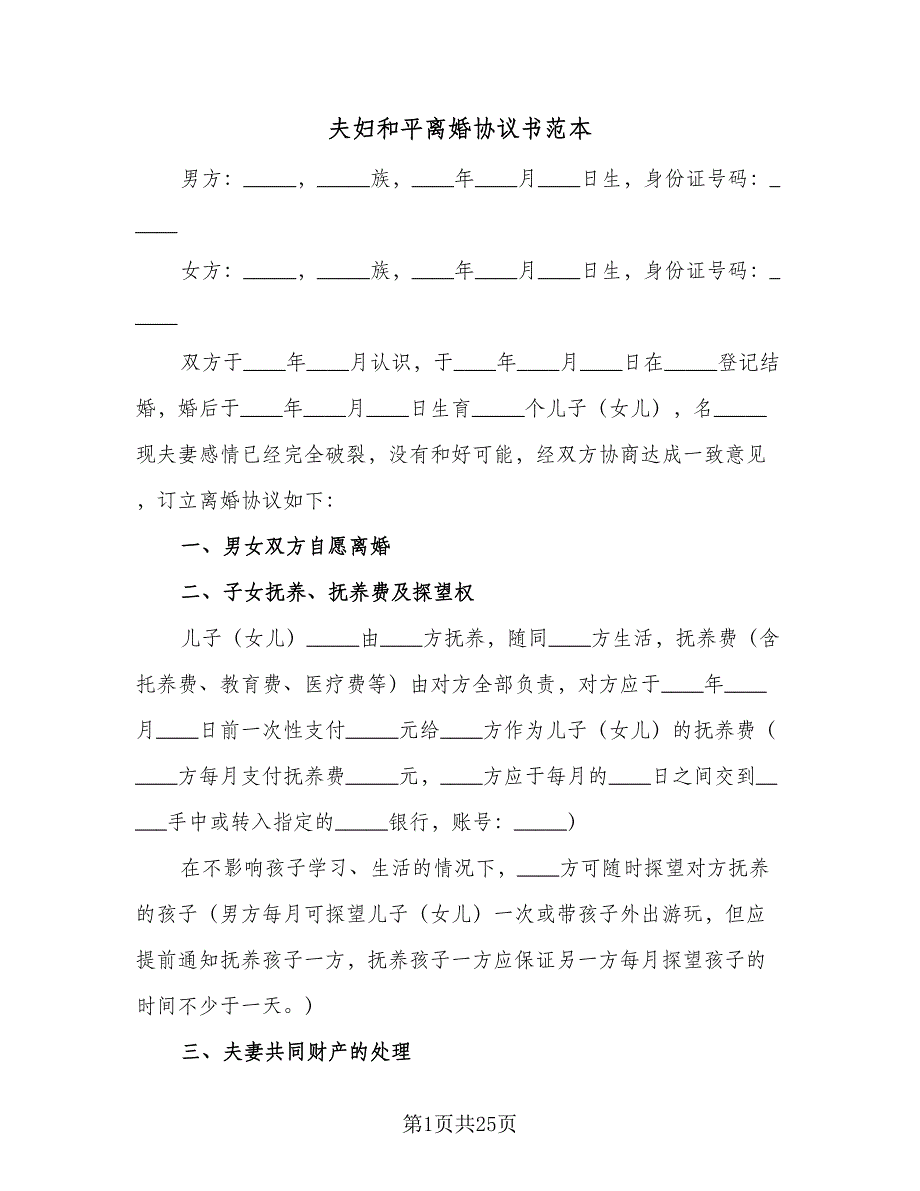 夫妇和平离婚协议书范本
男方：_____，_____族，____年____月____日生，身份证号码：_
____
女方：_____，_____族，____年____月____日生，身份证号码：_
____
双方于____年____月认识，于____年____月____日在_____登记结
婚，婚后于____年____月____日生育_____个儿子（女儿），名_____
现夫妻感情已经完全破裂，没有和好可能，经双方协商达成一致意见
，订立离婚协议如下：
一、男女双方自愿离婚
二、子女抚养、抚养费及探望权
儿子（女儿）_____由____方抚养，随同____方生活，抚养费（含
托养费、教育费、医疗费等）由对方全部负责，对方应于____年____
月____日前一次性支付_____元给____方作为儿子（女儿）的抚养费（
____方每月支付抚养费_____元，____方应于每月的____日之间交到__
___手中或转入指定的_____银行，账号：_____）
在不影响孩子学习、生活的情况下，____方可随时探望对方抚养
的孩子（男方每月可探望儿子（女儿）一次或带孩子外出游玩，但应
提前通知抚养孩子一方，抚养孩子一方应保证另一方每月探望孩子的
时间不少于一天。）
三、夫妻共同财产的处理
第1页共25页